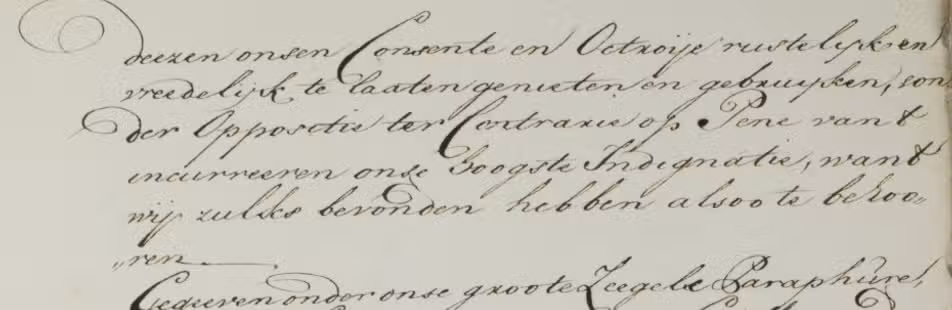 deezen onsen Consente en Octroije rustelijk en
vreedelijk te laaten genieten en gebruijken, son
der Oppositie ter Contrarie op Pene van t
incurreeren onse hoogste Indignatie, want
wij zulks bevonden hebben alsoo te behoo„
„ren.
Gegeeven onder onse groote Zeegele Paraphure,